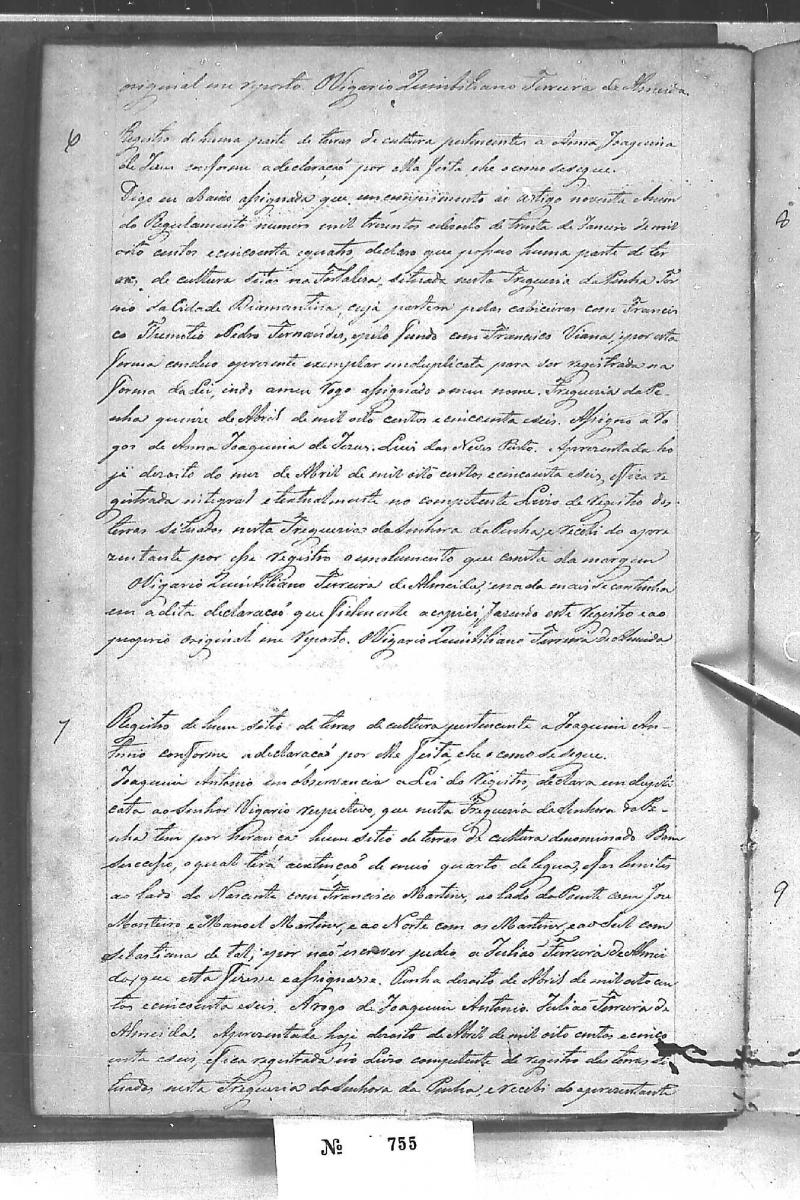 original me reporto. O Vigario Quintiliano Ferreira de Almeida.
6
Registro de huma parte de terras de cultura pertencentes a Anna Joaquina
de Jezus conforme a declaracaõ por ella feita ehe o como se segue.
Digo eu abaixo assignada que em cumprimento ao artigo noventa e hum
do Regulamento numero mil trezentos e dezoito de trinta de Janeiro de mil
oito centos e cincoenta e quatro, declaro que possuo huma parte de ter
ras de cultura sitas na Fortaleza, situada nesta Freguezia da Penha Ter
mo da Cidade Diamantina, cuja partem pelas cabiceiras com Francis
co Themotio Pedro Fernandes, e pelo fundo com Francisco Viana, e por esta
forma concluo o prezente exemplar em duplicata para ser registrada na
forma da Lei, indo a meu rogo assignado o meu nome. Freguezia da Pe-
nha quinze de Abril de mil oito centos e cincoenta e seis. Assigno a ro
gos de Anna Joaquina de Jezus. Luis das Neves Pinto. Aprezentada ho
je dezoito do mez de Abril de mil oito centos e cincoenta e seis, e fica re
gistrada integral e textualmente no competente Livro de registro das
terras situadas nesta Freguezia da Senhora da Penha, e recebi do apre
zentante por esse registro o emolumento que consta da margem
O Vigario Quintiliano Ferreira de Almeida, e nada mais se continha
em a dita declaracaõ que fielmente a copiei, fazendo este registro e ao
proprio original me reporto. O Vigario Quintiliano Ferreira de Almeida
7
Registro de hum sitio de terras de cultura pertencente a Joaquim An-
tonio conforme a declaracaõ por elle feita, ehe o como se segue.
Joaquim Antonio em observancia a Lei do registro, declara em dupli
cata ao Senhor Vigario respectivo, que nesta Freguezia da Senhora da Pe
nha tem por herança hum sitio de terras de cultura denominado Bom
Successo, o qual terá a extençaõ de meio quarto de legua, e faz limites
ao lado do Nascente com Francisco Martins, ao lado do Poente com Joze
Monteiro e Manoel Martins, e ao Norte com os Martins, e ao Sul com
Sebastiana de tal; e por naõ escrever pedio a Juliaõ Ferreira de Almei
da, que esta fizesse e assignasse. Penha dezoito de Abril de mil oito cen
tos e cincoenta e seis. A rogo de Joaquim Antonio. Juliaõ Ferreira de
Almeida. Aprezentada hoje dezoito de Abril de mil oito centos e cinco
enta e seis, e fica registrada no Livro competente de registro das terras si
tuadas nesta Freguezia da Senhora da Penha, e recebi do aprezentante
8
9
Nº 755